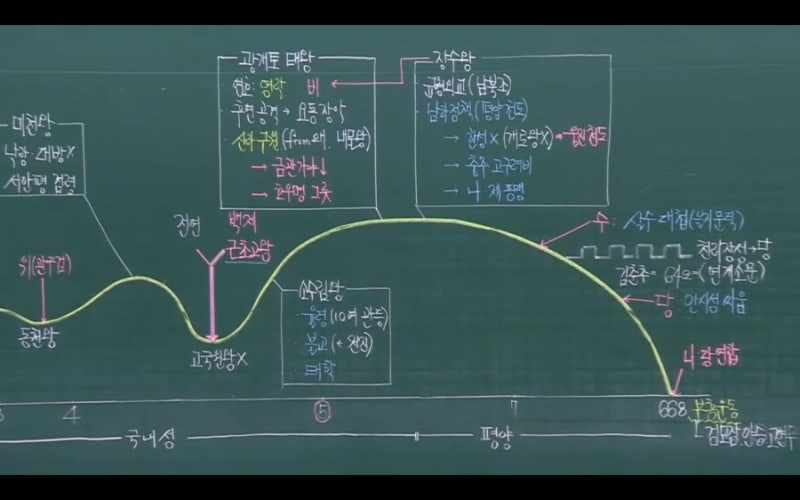 미천왕
낙랑·대방X
서안평 점령
위(관구검)
동천왕
광개토 대왕
연호: 영락 비
후연 공격 → 요동 장악
신라 구원 (from 왜, 내물왕)
→ 금관가야↓
→ 호우명 그릇
전연
백제
근초고왕
고국원왕X
소수림왕
· 율령 (10여 관등)
· 불교 (← 전진)
· 태학
장수왕
(남북조)
남하정책 (평양 천도)
→ 한성X (개로왕X) → 웅진천도
→ 충주 고구려비
→ 나·제 동맹
수: 살수 대첩 (을지문덕)
천리장성 → 당
김춘추
(연개소문)
당: 안시성 싸움
나·당 연합
4
⑤
7
668
부흥운동
국내성
평양
검모잠, 안승, 고연무